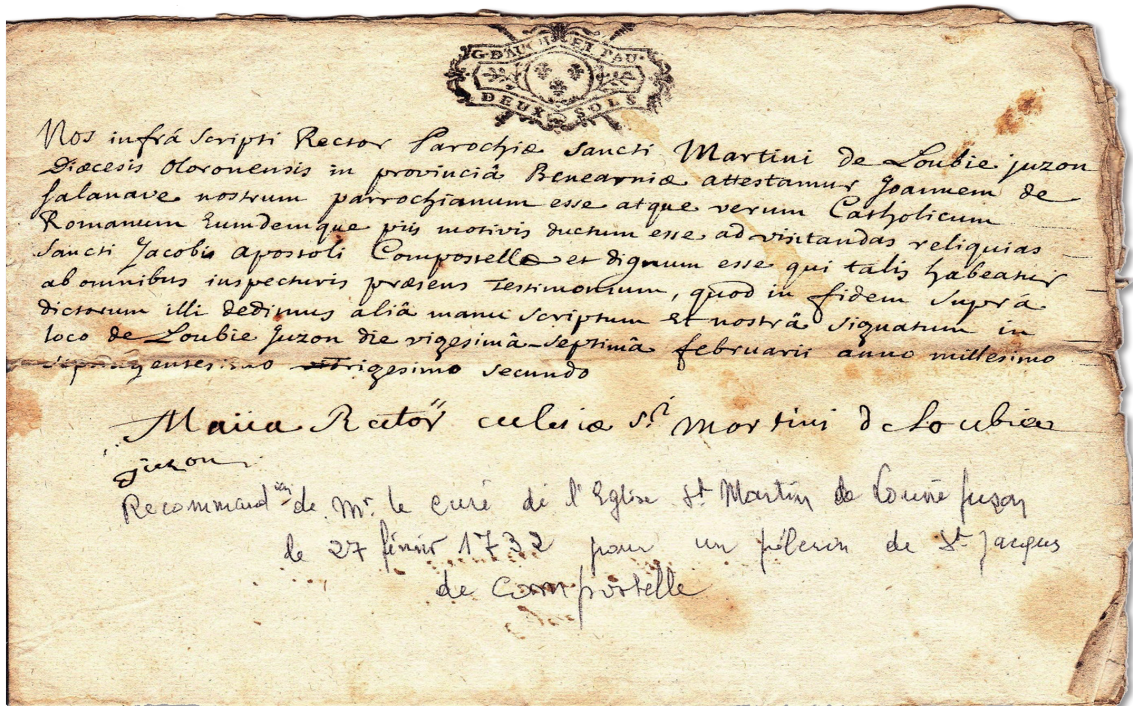 G. D'AUCH ET PAU.
DEUX SOLS
Nos infrá scripti Rector Parochiæ Sancti Martini de Loubie juzon
Diæcesis Oloronensis in provinciâ Benearniæ attestamur Joannem de
Salanave nostrum parrochianum esse atque verum Catholicum
Romanum Eumdemque piis motivis ductum esse ad visitandas reliquias
Sancti Jacobi apostoli Compostellæ et dignum esse qui talis habeatur
ab omnibus inspecturis præsens Testimonium, quod in fidem supra
dictorum illi dedimus aliâ manu scriptum et nostrâ signatum in
loco de Loubie juzon die vigesimâ-septimâ februarii anno millesimo
septingentesimo trigesimo secundo
Rector eclesiæ Sti Martini de Loubie
juzon
Recommandion de Mr. le curé de l'Eglise St Martin de Louvie Juzon
le 27 février 1732 pour un pélerin de St Jacques
de Compostelle